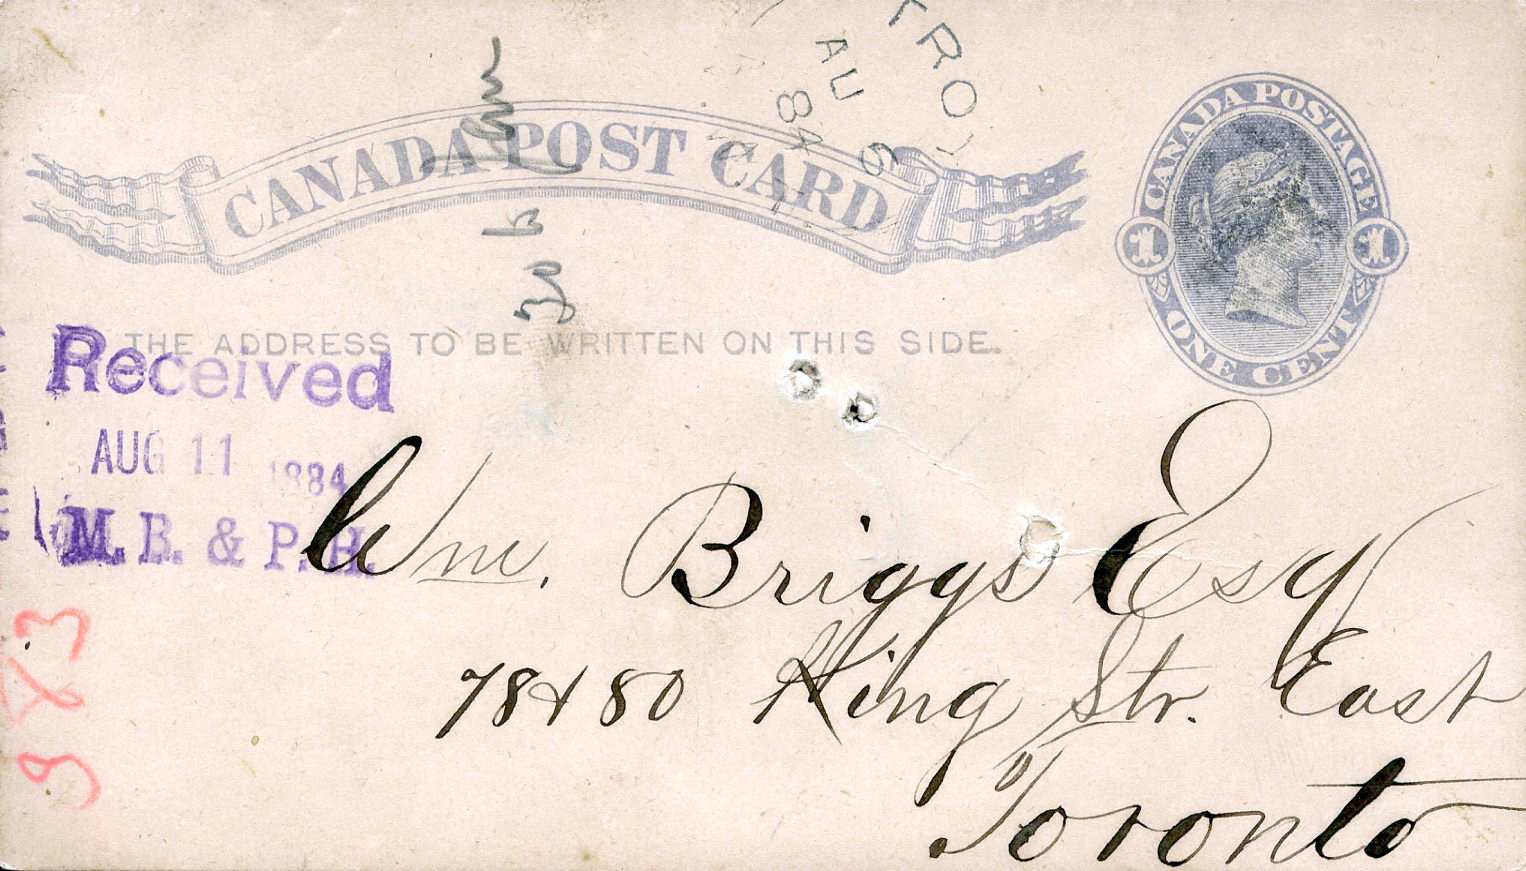 TROY
AU 6
84
CANADA POST CARD
CANADA POSTAGE
1 1
ONE CENT
THE ADDRESS TO BE WRITTEN ON THIS SIDE.
Received
AUG 11 1884
M. B. & P. H.
Wm. Briggs Esq
78 & 80 King Str. East
Toronto